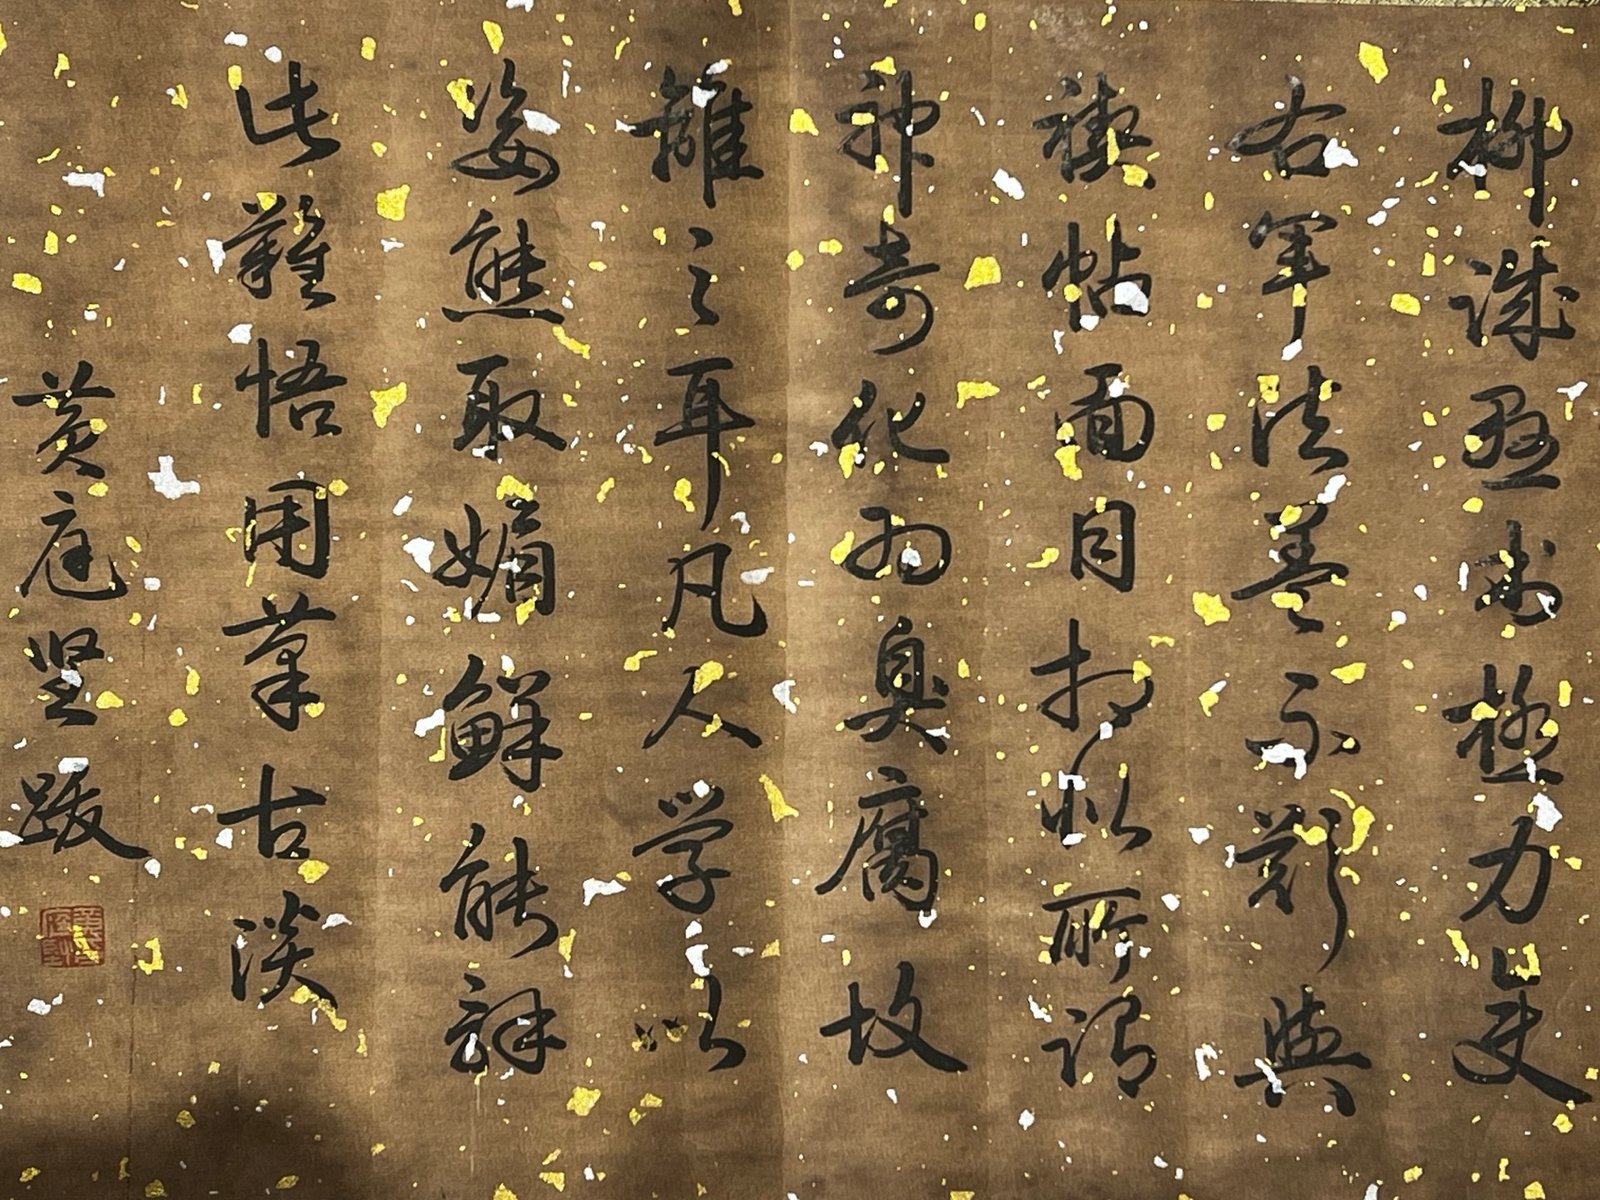 柳誠懸書極力変
右軍法盖不欲與
禊帖面目相似所謂
神奇化為臭腐故
離之耳凡人学以
姿態取媚鮮能解
此難悟用筆古淡
黄庭坚跋